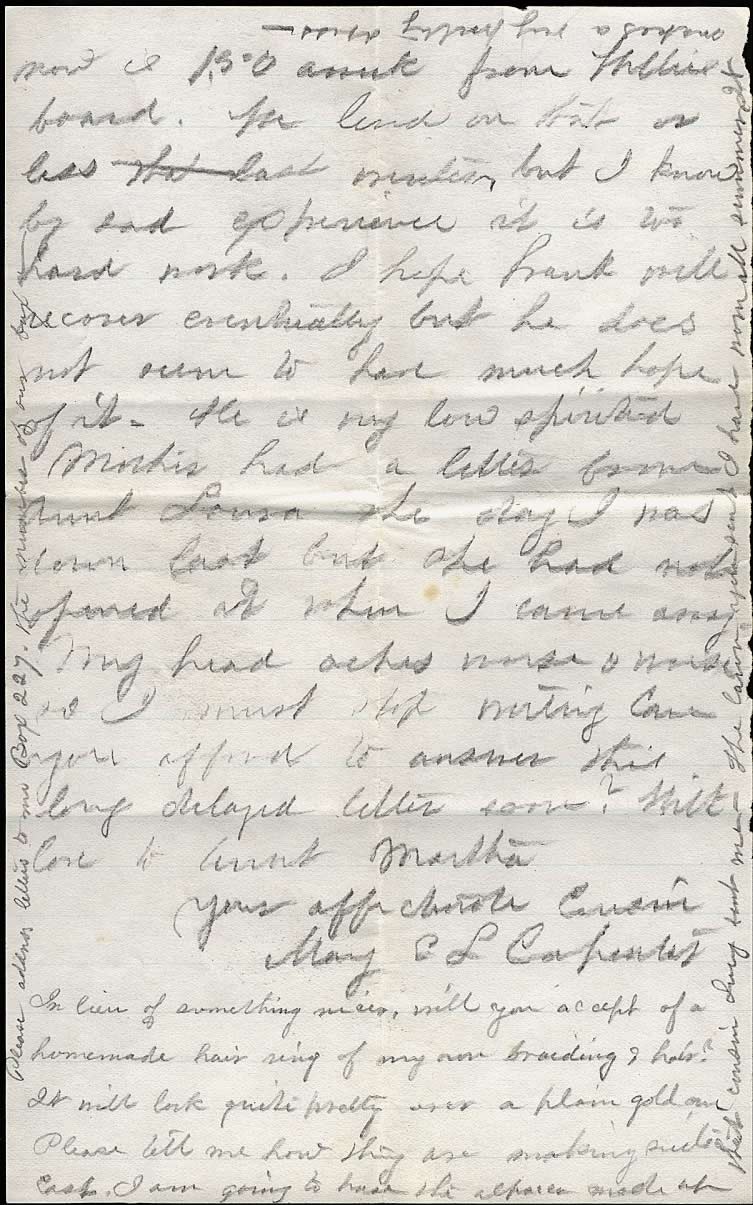 now is 1.50 a week from Willie's
board. We lived on that or
less that last winter, but I know
by sad experience it is too
hard work. I hope Frank will
recover eventually but he does
not seem to have much hope
of it. He is very low spirited
Mother had a letter from
Aunt Lousa the day I was
down last but she had not
opened it when I came away
My head aches worse & worse
so I must stop writing Can
you afford to answer this
long delayed letter soon? With
love to Aunt Martha
Your affectionate Cousin
Mary E L Carpenter
In lieu of something nicer, will you accept of a
homemade hair ring of my own braiding & hair?
It will look quite pretty over a plain gold one
Please tell me how thing are making suits
East. I am going to have the alpaca made up
that cousin Lucy sent me. The lawn you sent I have worn all summer. It
makes a very pretty dress
Please address letters to me Box 227. the number of our box